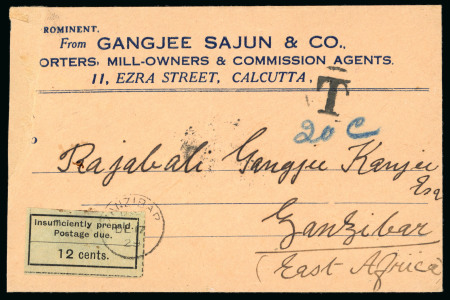 ROMINENT.
From GANGJEE SAJUN & CO.,
ORTERS, MILL-OWNERS & COMMISSION AGENTS.
11, EZRA STREET, CALCUTTA,
T
20 C
Rajabali Gangjee Kanjee
Esq
Zanzibar
(East Africa)
ZANZIBAR
Insufficiently prepaid.
Postage due.
12 cents.